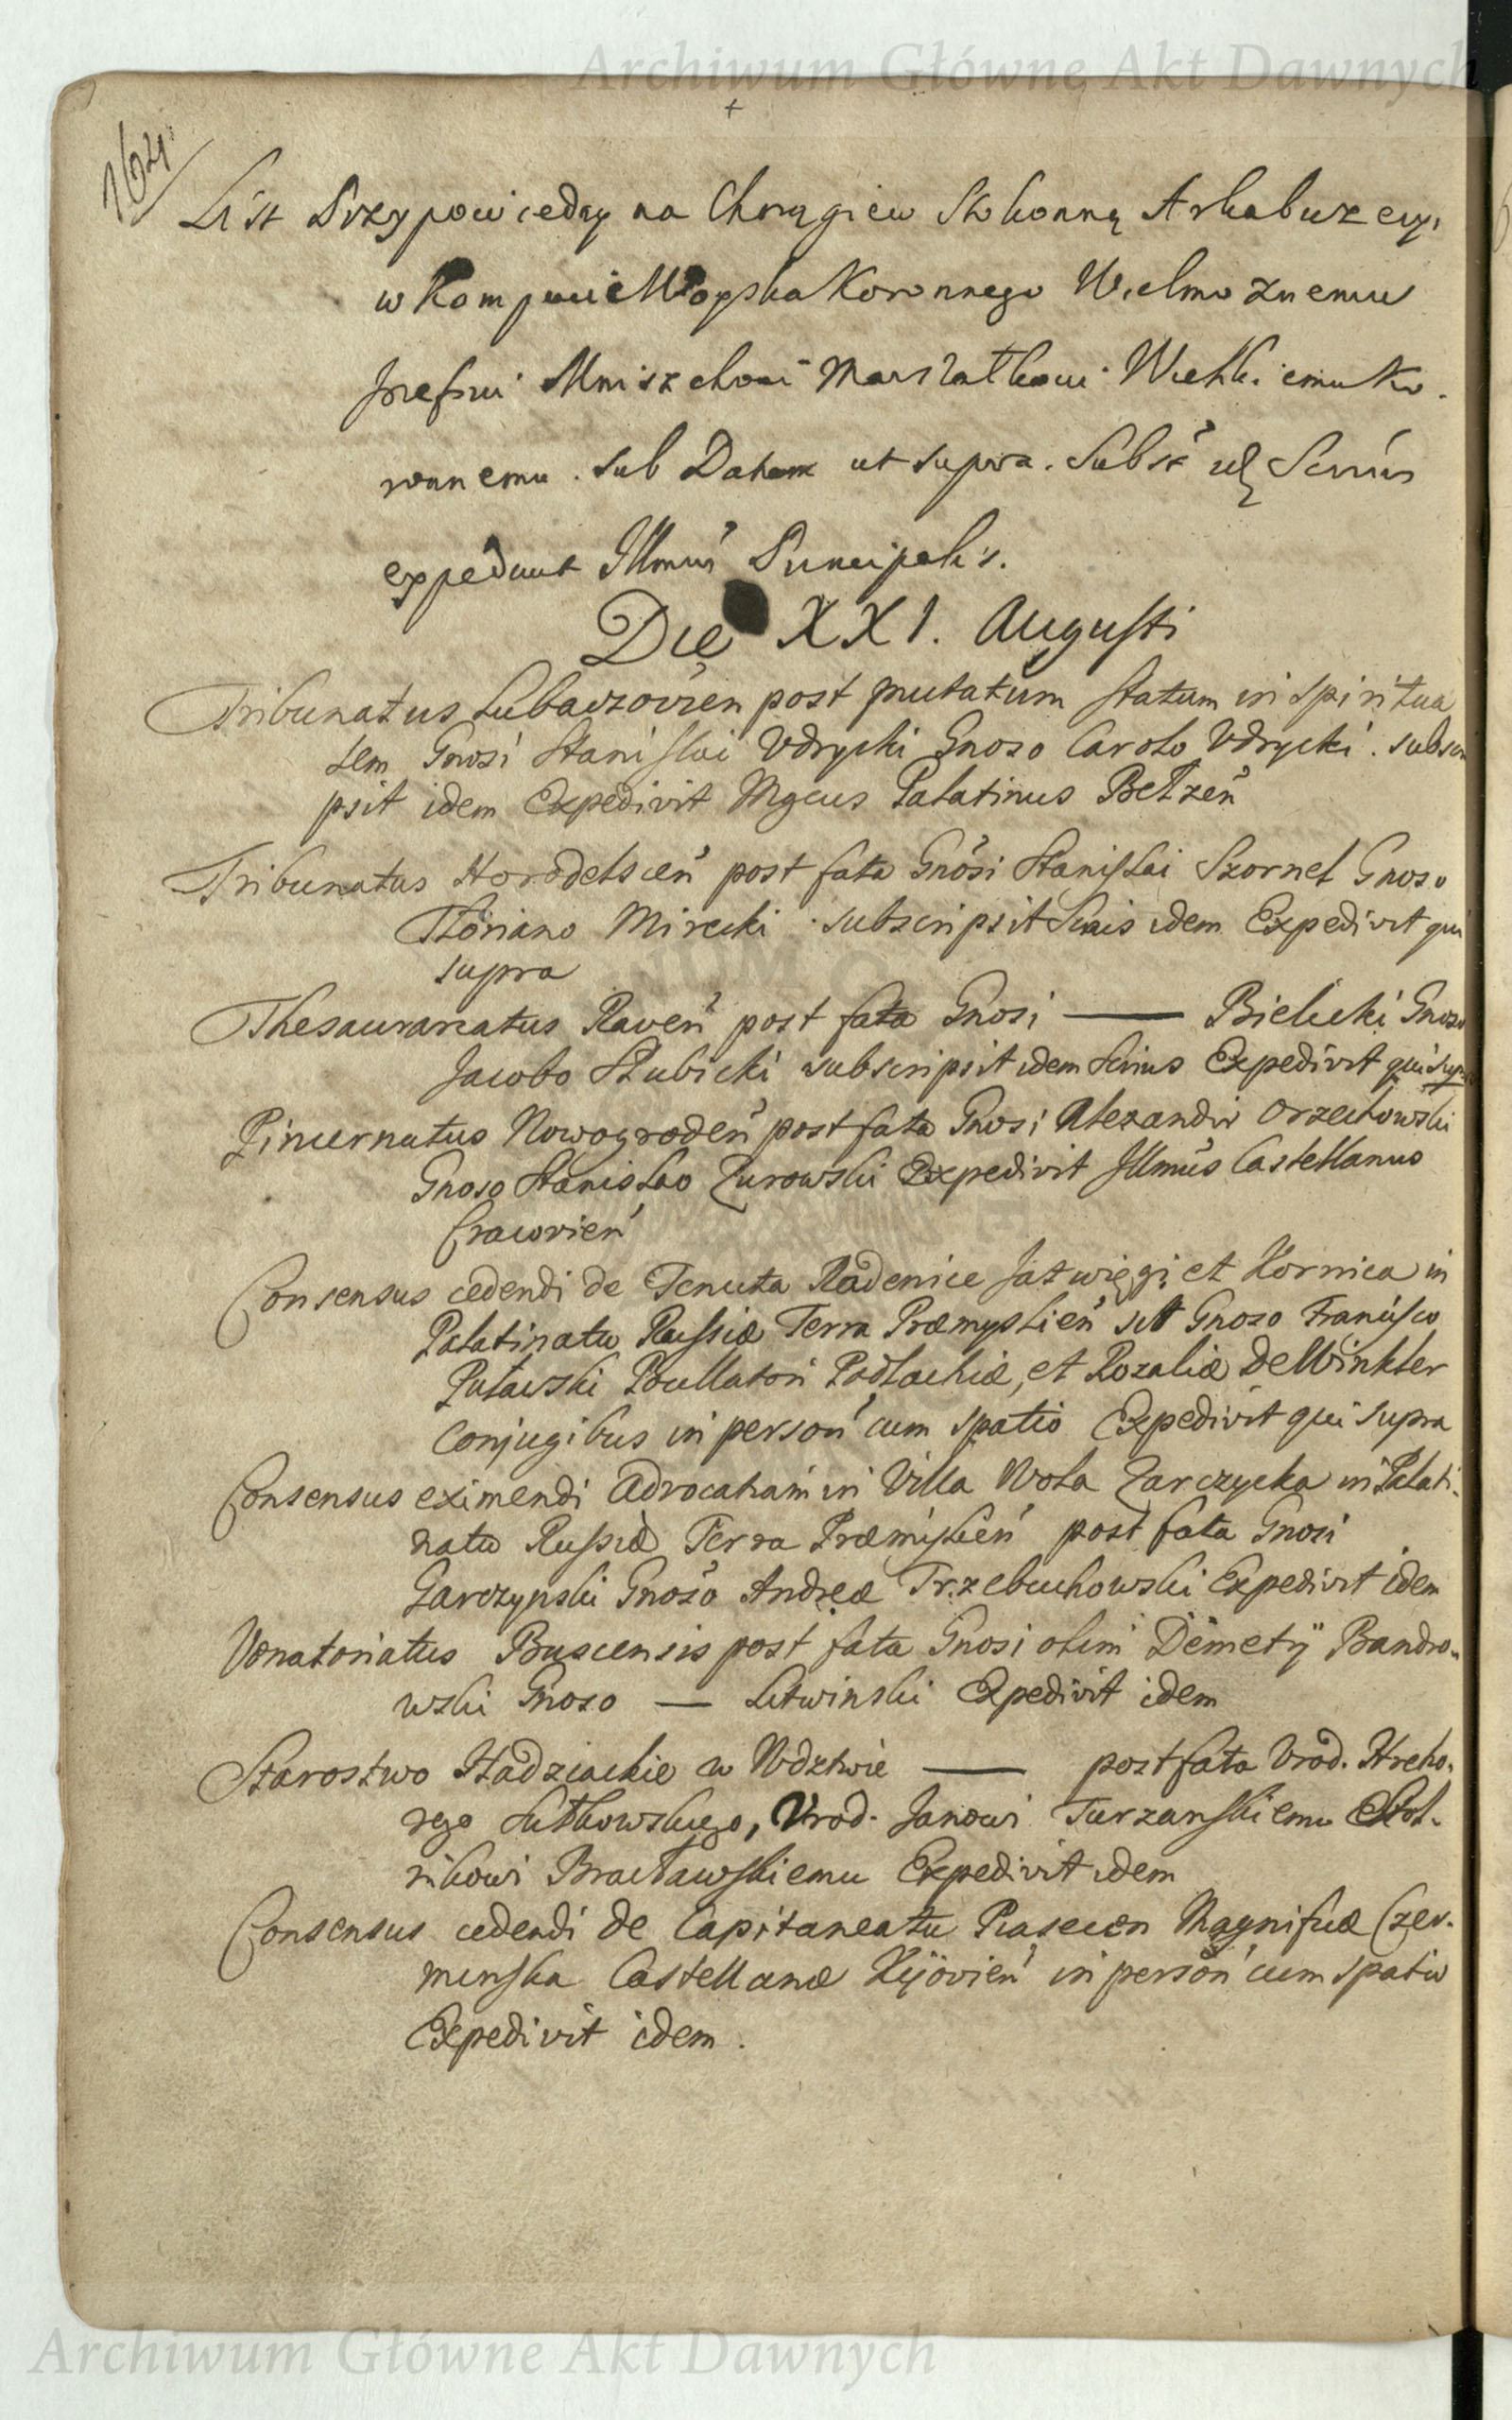 Archiwum Główne Akt Dawnych
164.
List Przypowiedny na Chorągiew Stokonną Arkabuzeryi
w Kompucie Woyska Koronnego Wielmoznemu
Jozefowi Mniszchowi Marszałkowi Wielkiemu Ko.
ronnemu. sub Datam ut supra. Subst Senius
expediunt Illmus Principalis.
Die XXI. Augusti
Tribunatus Lubaczovien post mutatum statum in spiritua
lem Gnosi Stanislai Udrycki Gnoso Carolo Udrycki. subscri
psit idem Expedivit Mgcus Palatinus Bełzen
Tribunatus Horodelscen post fata Gnosi Stanislai Szornel Gnoso
Floriano Mirecki subscripsit idem Expedivit qui
supra
Thesaurareatus Raven post fata Gnosi — Bielicki Gnoso
Jacobo Słubicki subscripsit idem Expedivit qui supra
Pincernatus Nowogroden post fata Gnosi Alexandri Orzechowski
Gnoso Stanislao Zurowski Expedivit Illmus Castellanus
Cracovien
Consensus cedendi de Tenuta Radenice Jatwięgi et Hornica in
Palatinatu Russiæ Terra Præmyslien sit Gnoso Francisco
Puławski Pocillatori Podlachiæ, et Rozaliæ De Winkler
Conjugibus in person cum spatio Expedivit qui supra
Consensus eximendi Advocatiam in Villa Wola Zarczycka in Palati.
natu Russiæ Terra Præmislien post fata Gnosi
Garczynski Gnoso Andreæ Trzebuchowski Expedivit idem
Venatoriatus Buscensis post fata Gnosi olim Demetÿ Bandro.
wski Gnoso — Litwinski Expedivit idem
Starostwo Hadziackie w Wdztwie — post fata Urod. Hreho.
rego Sutkowskiego, Urod. Janowi Turzanskiemu Stol.
nikowi Bracławskiemu Expedivit idem
Consensus cedendi de Capitaneatu Piasecen Magnificæ Czer.
minska Castellanæ Kijovien in person cum spatio
Expedivit idem.
Archiwum Główne Akt Dawnych